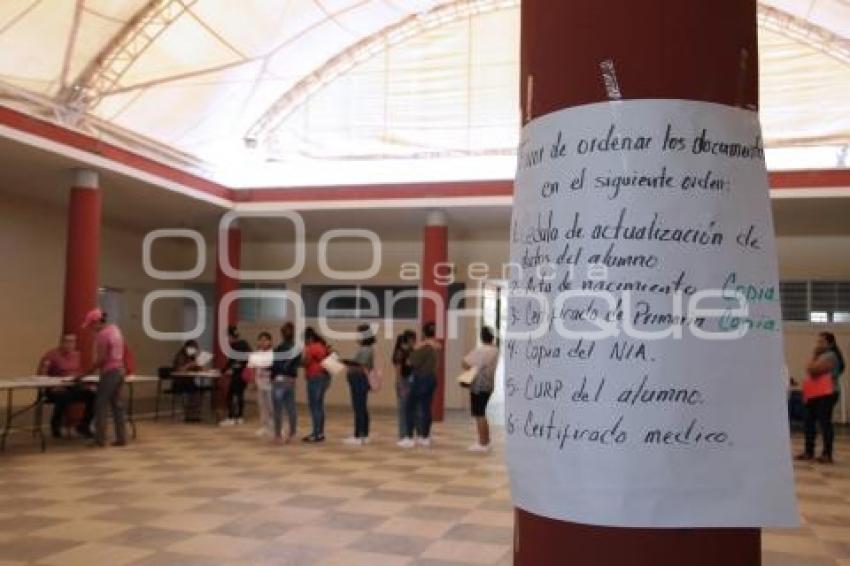 Favor de ordenar los documentos
en el siguiente orden:
1. Cédula de actualización de
datos del alumno
2. Acta de nacimiento Copia
3. Certificado de Primaria Copia
4. Copia del NIA.
5. CURP del alumno.
6. Certificado medico.
agencia
enfoque